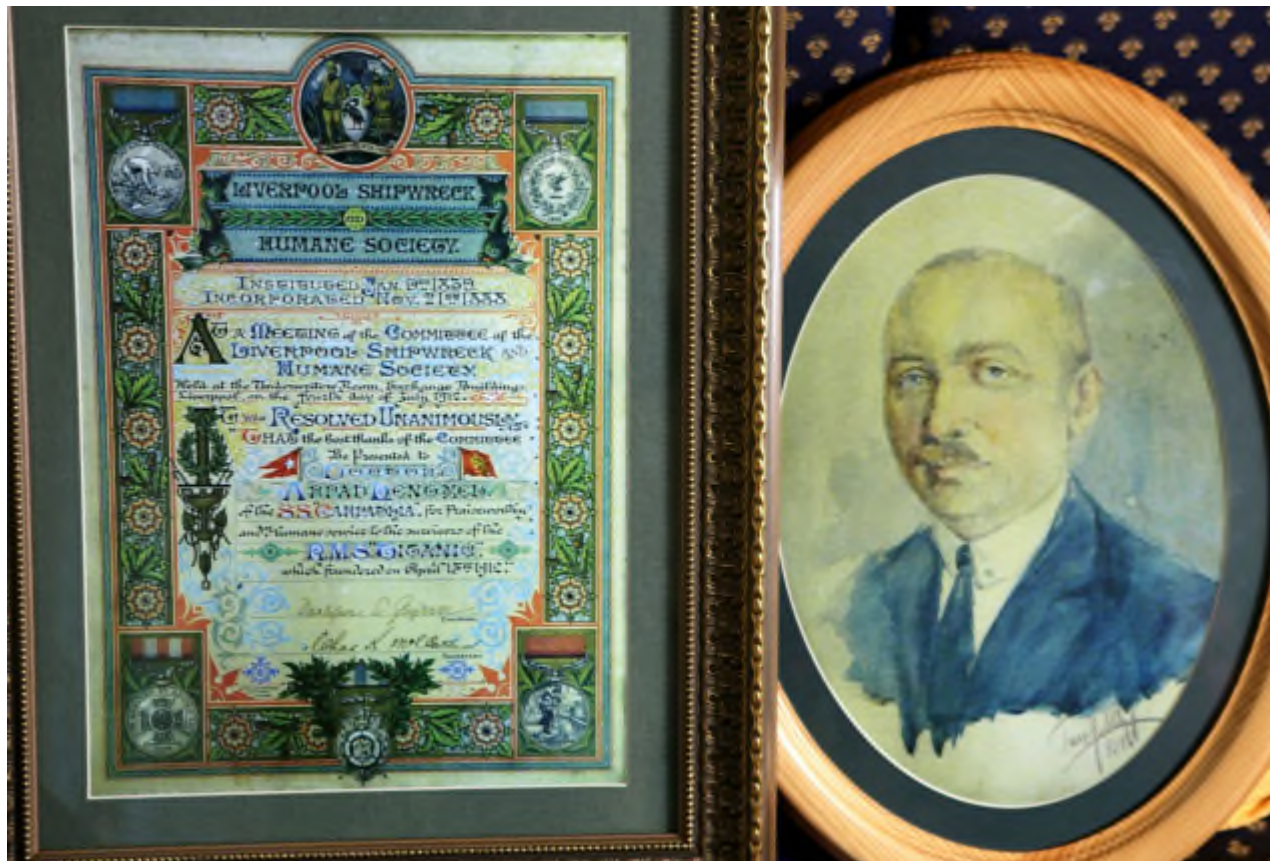 LIVERPOOL SHIPWRECK
AND
HUMANE SOCIETY.
INSTITUTED JAN. 9TH 1839.
INCORPORATED NOV. 21ST 1888.
AT A MEETING of the COMMITTEE of the
LIVERPOOL SHIPWRECK AND
HUMANE SOCIETY.
Held at the Underwriters Room, Exchange Buildings
Liverpool, on the fourth day of July 1912.
It was RESOLVED UNANIMOUSLY
THAT the best thanks of the COMMITTEE
Be Presented to
DOCTOR
ARPAD LENGYEL
of the S.S. "CARPATHIA", for Praiseworthy
and Humane service to the survivors of the
R.M.S. "TITANIC"
which foundered on April 15th 1912.